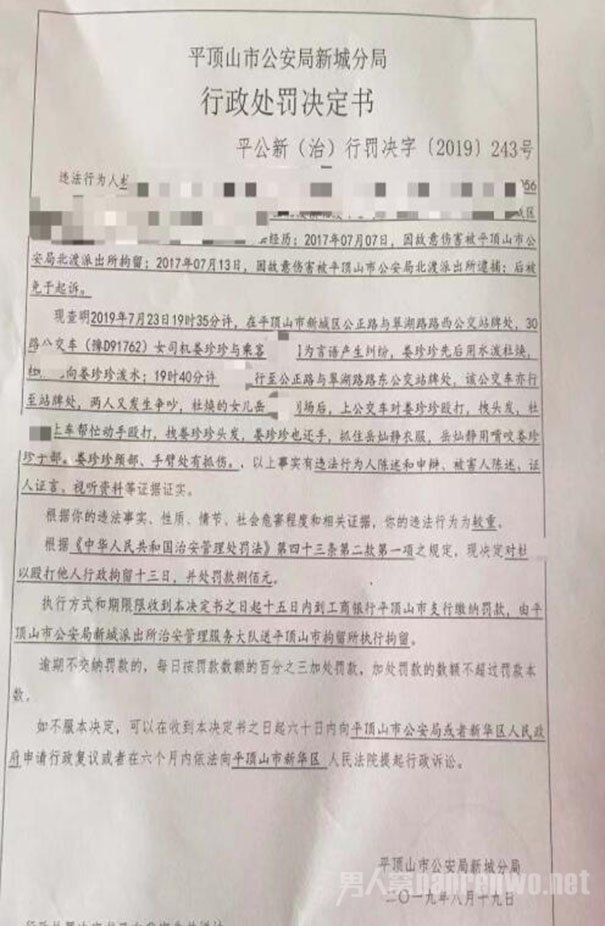 平顶山市公安局新城分局
行政处罚决定书
平公新（治）行罚决字〔2019〕243号
违法行为人
056
区
经历：2017年07月07日，因故意伤害被平顶山市公
安局北渡派出所拘留；2017年07月13日，因故意伤害被平顶山市公安局北渡派出所逮捕；后被
免于起诉。
现查明2019年7月23日19时35分许，在平顶山市新城区公正路与翠湖路路西公交站牌处，30
路公交车（豫D91762）女司机娄珍珍与乘客 为言语产生纠纷，娄珍珍先后用水泼杜焕，
向娄珍珍泼水；19时40分许 行至公正路与翠湖路路东公交站牌处，该公交车亦行
至站牌处，两人又发生争吵，杜焕的女儿岳 场后，上公交车对娄珍珍殴打，拽头发，杜
上车帮忙动手殴打，拽娄珍珍头发，娄珍珍也还手，抓住岳灿静衣服，岳灿静用嘴咬娄珍
珍手部。娄珍珍颈部、手臂处有抓伤。，以上事实有违法行为人陈述和申辩、被害人陈述、证
人证言、视听资料等证据证实。
根据你的违法事实、性质、情节、社会危害程度和相关证据，你的违法行为为较重。
根据《中华人民共和国治安管理处罚法》第四十三条第二款第一项之规定，现决定对杜
以殴打他人行政拘留十三日，并处罚款捌佰元。
执行方式和期限限收到本决定书之日起十五日内到工商银行平顶山市支行缴纳罚款，由平
顶山市公安局新城派出所治安管理服务大队送平顶山市拘留所执行拘留。
逾期不交纳罚款的，每日按罚款数额的百分之三加处罚款，加处罚款的数额不超过罚款本
数。
如不服本决定，可以在收到本决定书之日起六十日内向平顶山市公安局或者新华区人民政
府申请行政复议或者在六个月内依法向平顶山市新华区 人民法院提起行政诉讼。
平顶山市公安局新城分局
二〇一九年八月十九日
男人窝nanrenwo.net